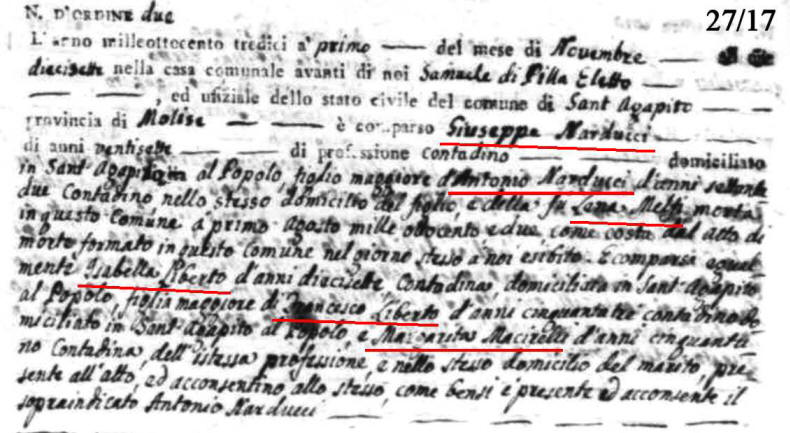 27/17
N. D'ORDINE due
L'anno milleottocento tredici a' primo del mese di Novembre
diecisette nella casa comunale avanti di noi Samuele di Pilla Eletto
, ed ufiziale dello stato civile del comune di Sant Agapito
provincia di Molise è comparso Giuseppe Narducci
di anni ventisette di professione contadino domiciliato
in Sant Agapito al Popolo, figlio maggiore d'Antonio Narducci d'anni settanta
due Contadino nello stesso domicilio del figlio, e della fu Lana Melfi morta
in questo Comune a primo Agosto mille ottocento e due come costa dal atto di
morte formato in questo Comune nel giorno stesso a noi esibito. E comparsa equal
mente Isabella Liberto d'anni diecisette Contadina, domiciliata in Sant Agapito
al Popolo, figlia maggiore di Francesco Liberto d'anni cinquanta tre contadino do
miciliato in Sant Agapito al Popolo, e Margarita Macirelli d'anni cinquanta
no Contadina, dell'istessa professione, e nello stesso domicilio del marito, pre
sente all'atto, ed acconsentino allo stesso, come bensi è presente ed acconsente il
sopraindicato Antonio Narducci